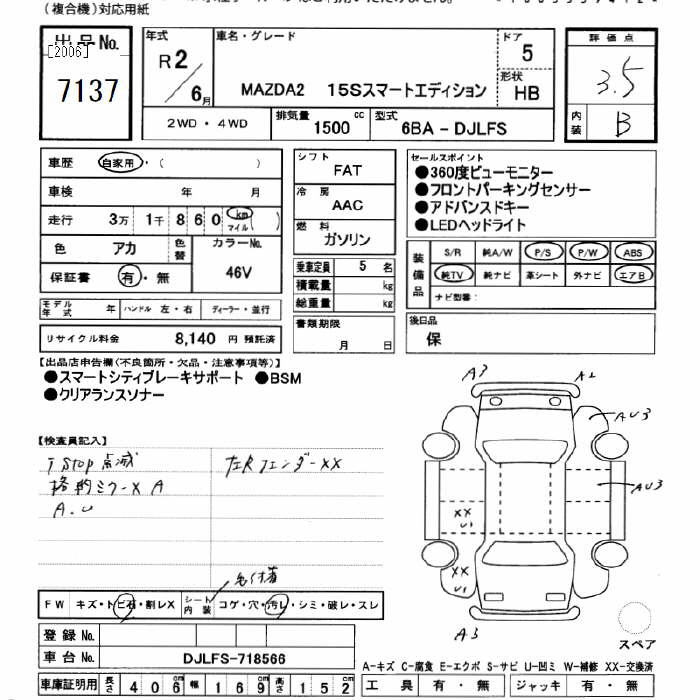 (複合機)対応用紙
出品No.
[2006]
7137
年式
R2/6月
車名・グレード
MAZDA2 15Sスマートエディション
ドア
5
形状
HB
評価点
3.5
内装
B
2WD・4WD
排気量
1500cc
型式
6BA-DJLFS
車歴 自家用・( )
車検 年 月
走行 3万1千860 km マイル
色 アカ 色替 カラーNo. 46V
保証書 有・無
モデル年式 年 ハンドル 左・右 ディーラー・並行
リサイクル料金 8,140 円 預託済
シフト
FAT
冷房
AAC
燃料
ガソリン
乗車定員 5 名
積載量 kg
総重量 kg
書類期限
月 日
セールスポイント
●360度ビューモニター
●フロントパーキングセンサー
●アドバンスドキー
●LEDヘッドライト
装備品
S/R 純A/W P/S P/W ABS
純TV 純ナビ 革シート 外ナビ エアB
ナビ型番:
後日品
保
【出品店申告欄(不良箇所・欠品・注意事項等)】
●スマートシティブレーキサポート ●BSM
●クリアランスソナー
【検査員記入】
i stop 点滅
左Rフェンダーxx
A.U
A3
A1
AU3
AU3
xx
U1
xx
U1
A3
スペア
FW キズ・トビ石・割レX シート内装 コゲ・穴・汚レ・シミ・破レ・スレ
登録No.
車台No. DJLFS-718566
車庫証明用 長さ 406cm 幅 169cm 高さ 152cm
A-キズ C-腐食 E-エクボ S-サビ U-凹ミ W-補修 XX-交換済
工具 有・無 ジャッキ 有・無